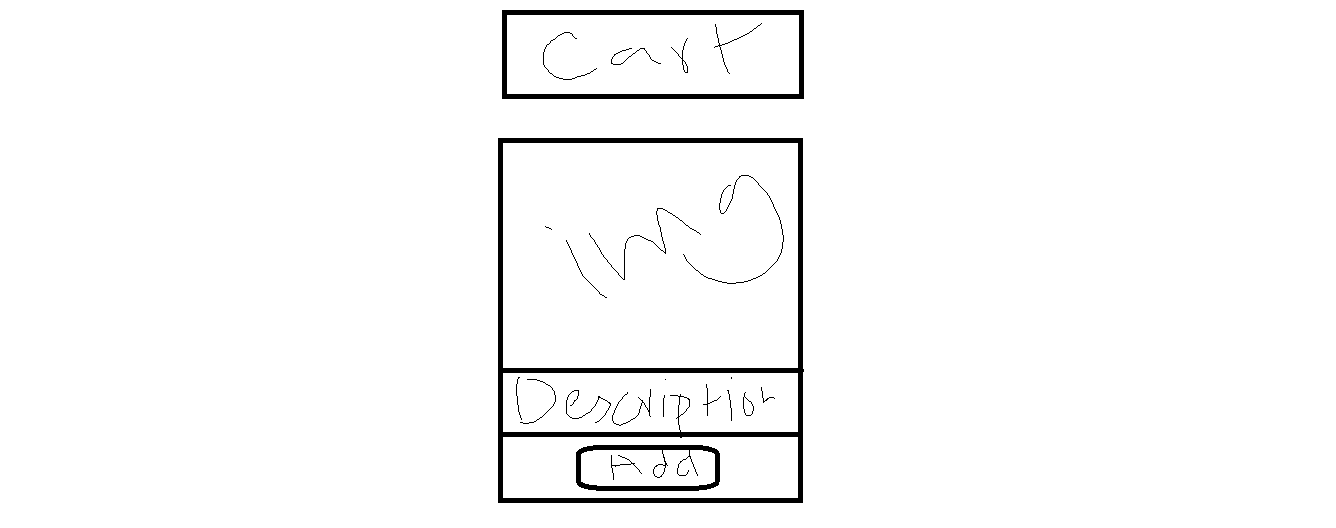 Cart
img
Description
Add